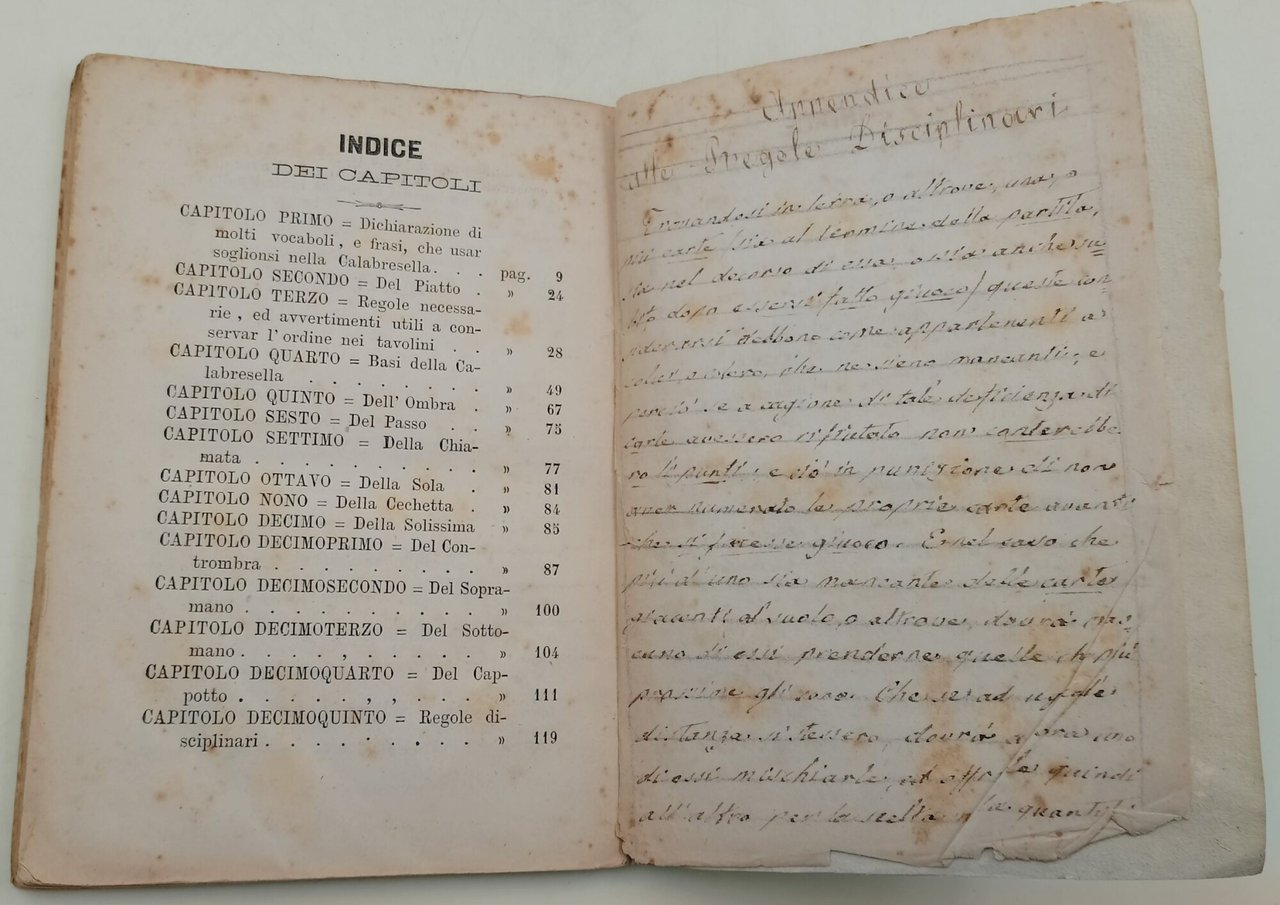 INDICE
DEI CAPITOLI
CAPITOLO PRIMO = Dichiarazione di
molti vocaboli, e frasi, che usar
soglionsi nella Calabresella. . . pag. 9
CAPITOLO SECONDO = Del Piatto . » 24
CAPITOLO TERZO = Regole necessa-
rie, ed avvertimenti utili a con-
servar l'ordine nei tavolini . . » 28
CAPITOLO QUARTO = Basi della Ca-
labresella . . . . . . . . » 49
CAPITOLO QUINTO = Dell' Ombra . » 67
CAPITOLO SESTO = Del Passo . . » 75
CAPITOLO SETTIMO = Della Chia-
mata . . . . . . . . . . » 77
CAPITOLO OTTAVO = Della Sola . » 81
CAPITOLO NONO = Della Cechetta . » 84
CAPITOLO DECIMO = Della Solissima » 85
CAPITOLO DECIMOPRIMO = Del Con-
trombra . . . . . . . . . » 87
CAPITOLO DECIMOSECONDO = Del Sopra-
mano . . . . . . . . . . » 100
CAPITOLO DECIMOTERZO = Del Sotto-
mano . . . . , . . . . . » 104
CAPITOLO DECIMOQUARTO = Del Cap-
potto . . . . . , , . . . . » 111
CAPITOLO DECIMOQUINTO = Regole di-
sciplinari . . . . . . . . . » 119
Appendice
alle Regole Disciplinari
Trovandosi in terra, o altrove, una, o
più carte (sia al termine della partita,
sia nel decorso di essa, ossia anche su-
bito dopo essersi fatto giuoco) queste con-
siderarsi debbono come appartenenti a
colui, o coloro, che ne sieno mancanti; e
perciò se a cagione di tale deficienza di
carte avessero rifiutato non conterebbe-
ro li punti; e ciò in punizione di non
aver numerato le proprie carte avanti
che si facesse giuoco. E nel caso che
più d'uno sia mancante delle carte
giacenti al suolo, o altrove, dovrà cias-
cuno di essi prenderne quelle ch più
prossime gli sono. Che se ad uguale
distanza si stessero, dovrà ora uno
di essi mischiarle, ed offrirle quindi
all'altro per la scelta la quantità